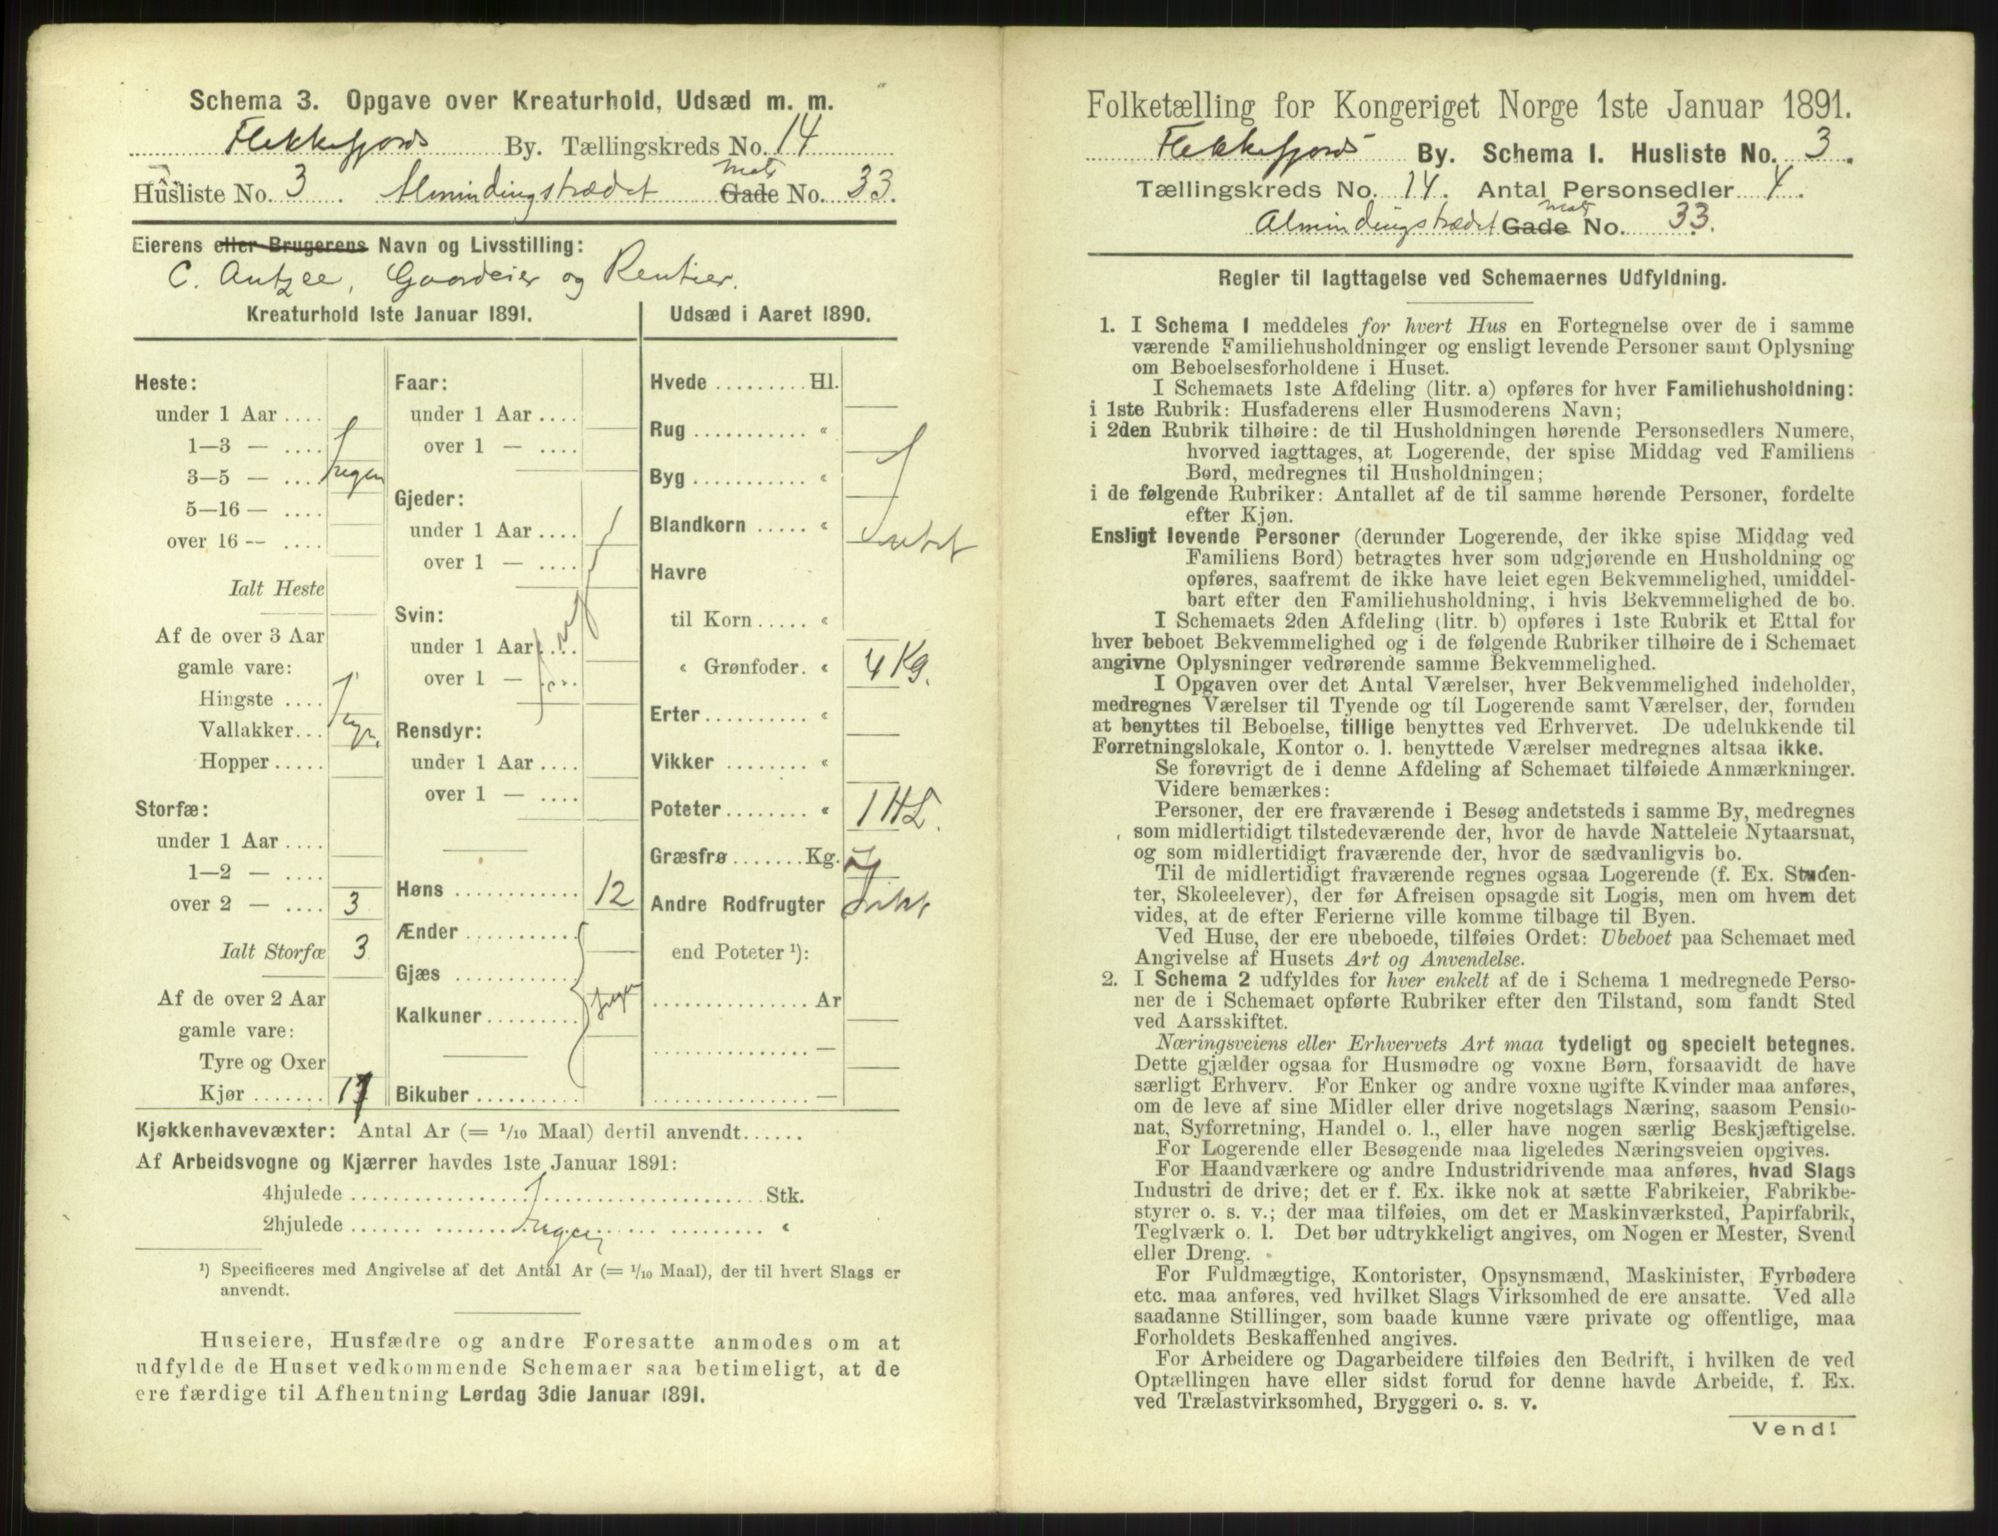 Schema 3. Opgave over Kreaturhold, Udsæd m. m.
Flekkefjords By. Tællingskreds No. 14
Husliste No. 3. Almindingstrædet Gade Matr No. 33.
Eierens eller Brugerens Navn og Livsstilling:
C. Antzee, Gaardeier og Rentier.
Kreaturhold 1ste Januar 1891.
Heste:
under 1 Aar ....
1—3 — ....
3—5 — ... Ingen
5—16 — ....
over 16 — ....
Ialt Heste
Af de over 3 Aar
gamle vare:
Hingste ....
Vallakker... Ingn.
Hopper .....
Storfæ:
under 1 Aar ....
1—2 — ....
over 2 — .... 3
Ialt Storfæ 3
Af de over 2 Aar
gamle vare:
Tyre og Oxer
Kjør .......
Faar:
under 1 Aar ....
over 1 — ....
Gjeder:
under 1 Aar ....
over 1 — ....
Svin:
under 1 Aar ....
over 1 — ....
Rensdyr:
under 1 Aar ....
over 1 — ....
Høns ........... 12
Ænder ..........
Gjæs ...........
Kalkuner......... Ingen
Bikuber ..........
Udsæd i Aaret 1890.
Hvede ......... Hl.
Rug ........... "
Byg ........... "
Blandkorn ..... " Intet
Havre
til Korn ..... "
" Grønfoder. " 4 Kg.
Erter.......... "
Vikker ........ "
Poteter........ " 1 HL.
Græsfrø ....... Kg.
Andre Rodfrugter
end Poteter ¹):
............... Ar
............... —
............... —
Kjøkkenhavevæxter: Antal Ar (= 1/10 Maal) dertil anvendt......
Af Arbeidsvogne og Kjærrer havdes 1ste Januar 1891:
4hjulede ........................................ Stk.
2hjulede ....... Ingen ................ "
¹) Specificeres med Angivelse af det Antal Ar (= 1/10 Maal), der til hvert Slags er
anvendt.
Huseiere, Husfædre og andre Foresatte anmodes om at
udfylde de Huset vedkommende Schemaer saa betimeligt, at de
ere færdige til Afhentning Lørdag 3die Januar 1891.
Folketælling for Kongeriget Norge 1ste Januar 1891.
Flekkefjords By. Schema 1. Husliste No. 3.
Tællingskreds No. 14. Antal Personsedler 4.
Almindingstrædet Gade Matr No. 33.
Regler til Iagttagelse ved Schemaernes Udfyldning.
1. I Schema 1 meddeles for hvert Hus en Fortegnelse over de i samme
værende Familiehusholdninger og ensligt levende Personer samt Oplysning
om Beboelsesforholdene i Huset.
I Schemaets 1ste Afdeling (litr. a) opføres for hver Familiehusholdning:
i 1ste Rubrik: Husfaderens eller Husmoderens Navn;
i 2den Rubrik tilhøire: de til Husholdningen hørende Personsedlers Numere,
hvorved iagttages, at Logerende, der spise Middag ved Familiens
Bord, medregnes til Husholdningen;
i de følgende Rubriker: Antallet af de til samme hørende Personer, fordelte
efter Kjøn.
Ensligt levende Personer (derunder Logerende, der ikke spise Middag ved
Familiens Bord) betragtes hver som udgjørende en Husholdning og
opføres, saafremt de ikke have leiet egen Bekvemmelighed, umiddel-
bart efter den Familiehusholdning, i hvis Bekvemmelighed de bo.
I Schemaets 2den Afdeling (litr. b) opføres i 1ste Rubrik et Ettal for
hver beboet Bekvemmelighed og i de følgende Rubriker tilhøire de i Schemaet
angivne Oplysninger vedrørende samme Bekvemmelighed.
I Opgaven over det Antal Værelser, hver Bekvemmelighed indeholder,
medregnes Værelser til Tyende og til Logerende samt Værelser, der, foruden
at benyttes til Beboelse, tillige benyttes ved Erhvervet. De udelukkende til
Forretningslokale, Kontor o. l. benyttede Værelser medregnes altsaa ikke.
Se forøvrigt de i denne Afdeling af Schemaet tilføiede Anmærkninger.
Videre bemærkes:
Personer, der ere fraværende i Besøg andetsteds i samme By, medregnes
som midlertidigt tilstedeværende der, hvor de havde Natteleie Nytaarsnat,
og som midlertidigt fraværende der, hvor de sædvanligvis bo.
Til de midlertidigt fraværende regnes ogsaa Logerende (f. Ex. Studen-
ter, Skoleelever), der før Afreisen opsagde sit Logis, men om hvem det
vides, at de efter Ferierne ville komme tilbage til Byen.
Ved Huse, der ere ubeboede, tilføies Ordet: Ubeboet paa Schemaet med
Angivelse af Husets Art og Anvendelse.
2. I Schema 2 udfyldes for hver enkelt af de i Schema 1 medregnede Perso-
ner de i Schemaet opførte Rubriker efter den Tilstand, som fandt Sted
ved Aarsskiftet.
Næringsveiens eller Erhvervets Art maa tydeligt og specielt betegnes.
Dette gjælder ogsaa for Husmødre og voxne Børn, forsaavidt de have
særligt Erhverv. For Enker og andre voxne ugifte Kvinder maa anføres,
om de leve af sine Midler eller drive nogetslags Næring, saasom Pensio-
nat, Syforretning, Handel o. l., eller have nogen særlig Beskjæftigelse.
For Logerende eller Besøgende maa ligeledes Næringsveien opgives.
For Haandværkere og andre Industridrivende maa anføres, hvad Slags
Industri de drive; det er f. Ex. ikke nok at sætte Fabrikeier, Fabrikbe-
styrer o. s. v.; der maa tilføies, om det er Maskinværksted, Papirfabrik,
Teglværk o. l. Det bør udtrykkeligt angives, om Nogen er Mester, Svend
eller Dreng.
For Fuldmægtige, Kontorister, Opsynsmænd, Maskinister, Fyrbødere
etc. maa anføres, ved hvilket Slags Virksomhed de ere ansatte. Ved alle
saadanne Stillinger, som baade kunne være private og offentlige, maa
Forholdets Beskaffenhed angives.
For Arbeidere og Dagarbeidere tilføies den Bedrift, i hvilken de ved
Optællingen have eller sidst forud for denne havde Arbeide, f. Ex.
ved Trælastvirksomhed, Bryggeri o. s. v.
Vend!